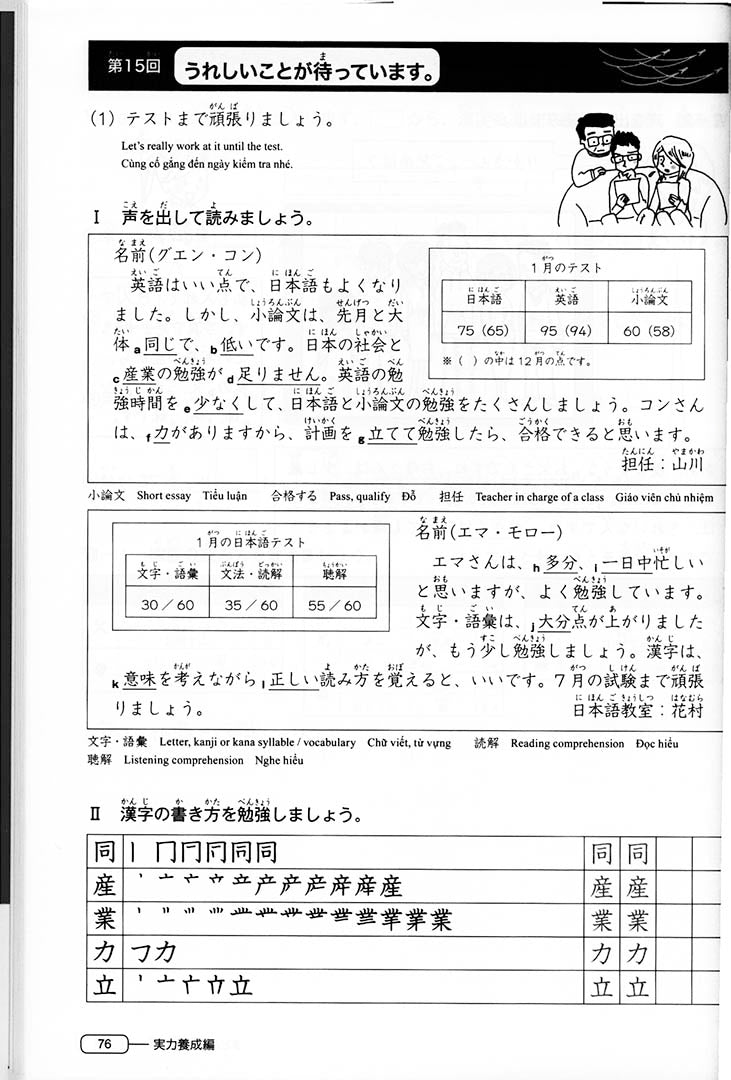 第15回 うれしいことが待っています。
(1) テストまで頑張りましょう。
Let's really work at it until the test.
Cùng cố gắng đến ngày kiểm tra nhé.
Ⅰ 声を出して読みましょう。
名前(グエン・コン)
英語はいい点で、日本語もよくなり
ました。しかし、小論文は、先月と大
体a同じで、b低いです。日本の社会と
c産業の勉強がd足りません。英語の勉
強時間をe少なくして、日本語と小論文の勉強をたくさんしましょう。コンさん
は、f力がありますから、計画をg立てて勉強したら、合格できると思います。
担任：山川
1月のテスト
日本語 英語 小論文
75 (65) 95 (94) 60 (58)
※ ( ) の中は12月の点です。
小論文 Short essay Tiểu luận 合格する Pass, qualify Đỗ 担任 Teacher in charge of a class Giáo viên chủ nhiệm
1月の日本語テスト
文字・語彙 文法・読解 聴解
30／60 35／60 55／60
名前(エマ・モロー)
エマさんは、h多分、i一日中忙しい
と思いますが、よく勉強しています。
文字・語彙は、j大分点が上がりました
が、もう少し勉強しましょう。漢字は、
k意味を考えながらl正しい読み方を覚えると、いいです。7月の試験まで頑張
りましょう。
日本語教室：花村
文字・語彙 Letter, kanji or kana syllable / vocabulary Chữ viết, từ vựng 読解 Reading comprehension Đọc hiểu
聴解 Listening comprehension Nghe hiểu
Ⅱ 漢字の書き方を勉強しましょう。
同 同 同 同
産 産 産 産
業 業 業 業
力 力 力 力
立 立 立 立
76 実力養成編